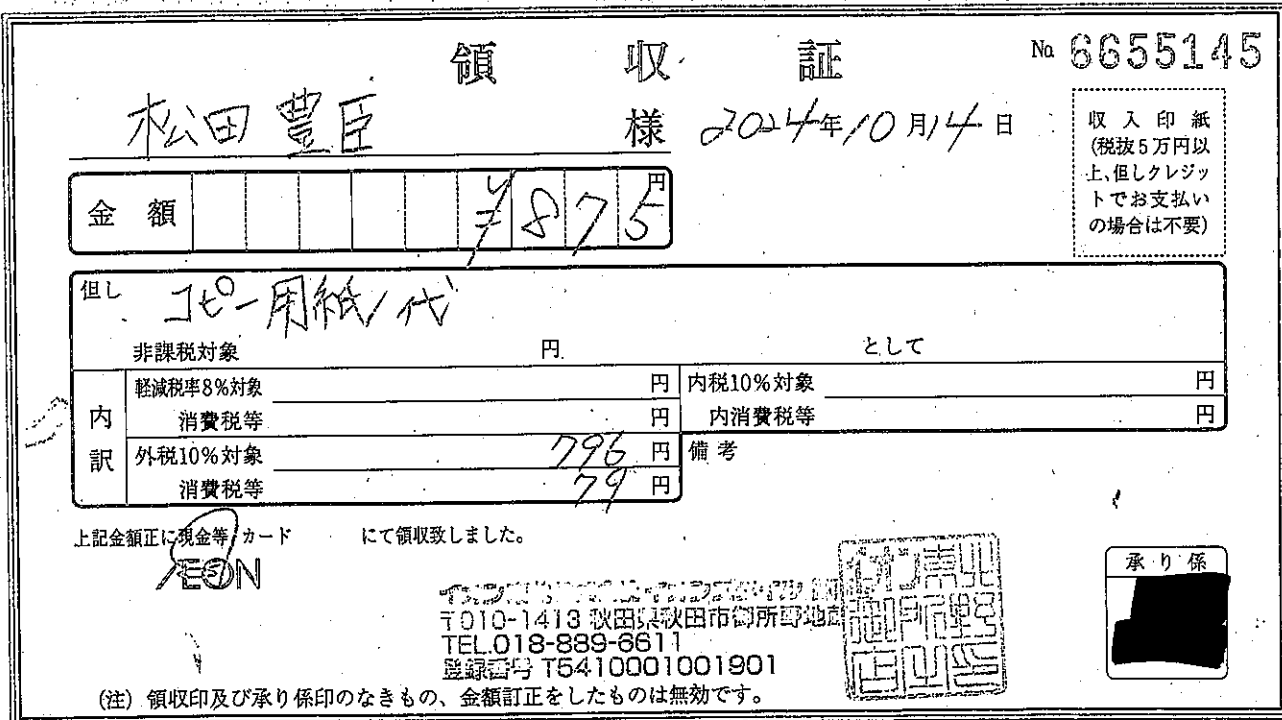 領収証
№ 6655145
松田豊臣 様 2024年10月14日
収入印紙
(税抜5万円以
上、但しクレジッ
トでお支払い
の場合は不要)
金額 ¥875円
但し コピー用紙代
非課税対象 円 として
内訳
軽減税率8%対象 円
消費税等 円
外税10%対象 796円
消費税等 79円
内税10%対象 円
内消費税等 円
備考
上記金額正に現金等/カード にて領収致しました。
ÆON
〒010-1413 秋田県秋田市御所野地
TEL.018-889-6611
登録番号 T5410001001901
承り係
(注) 領収印及び承り係印のなきもの、金額訂正をしたものは無効です。